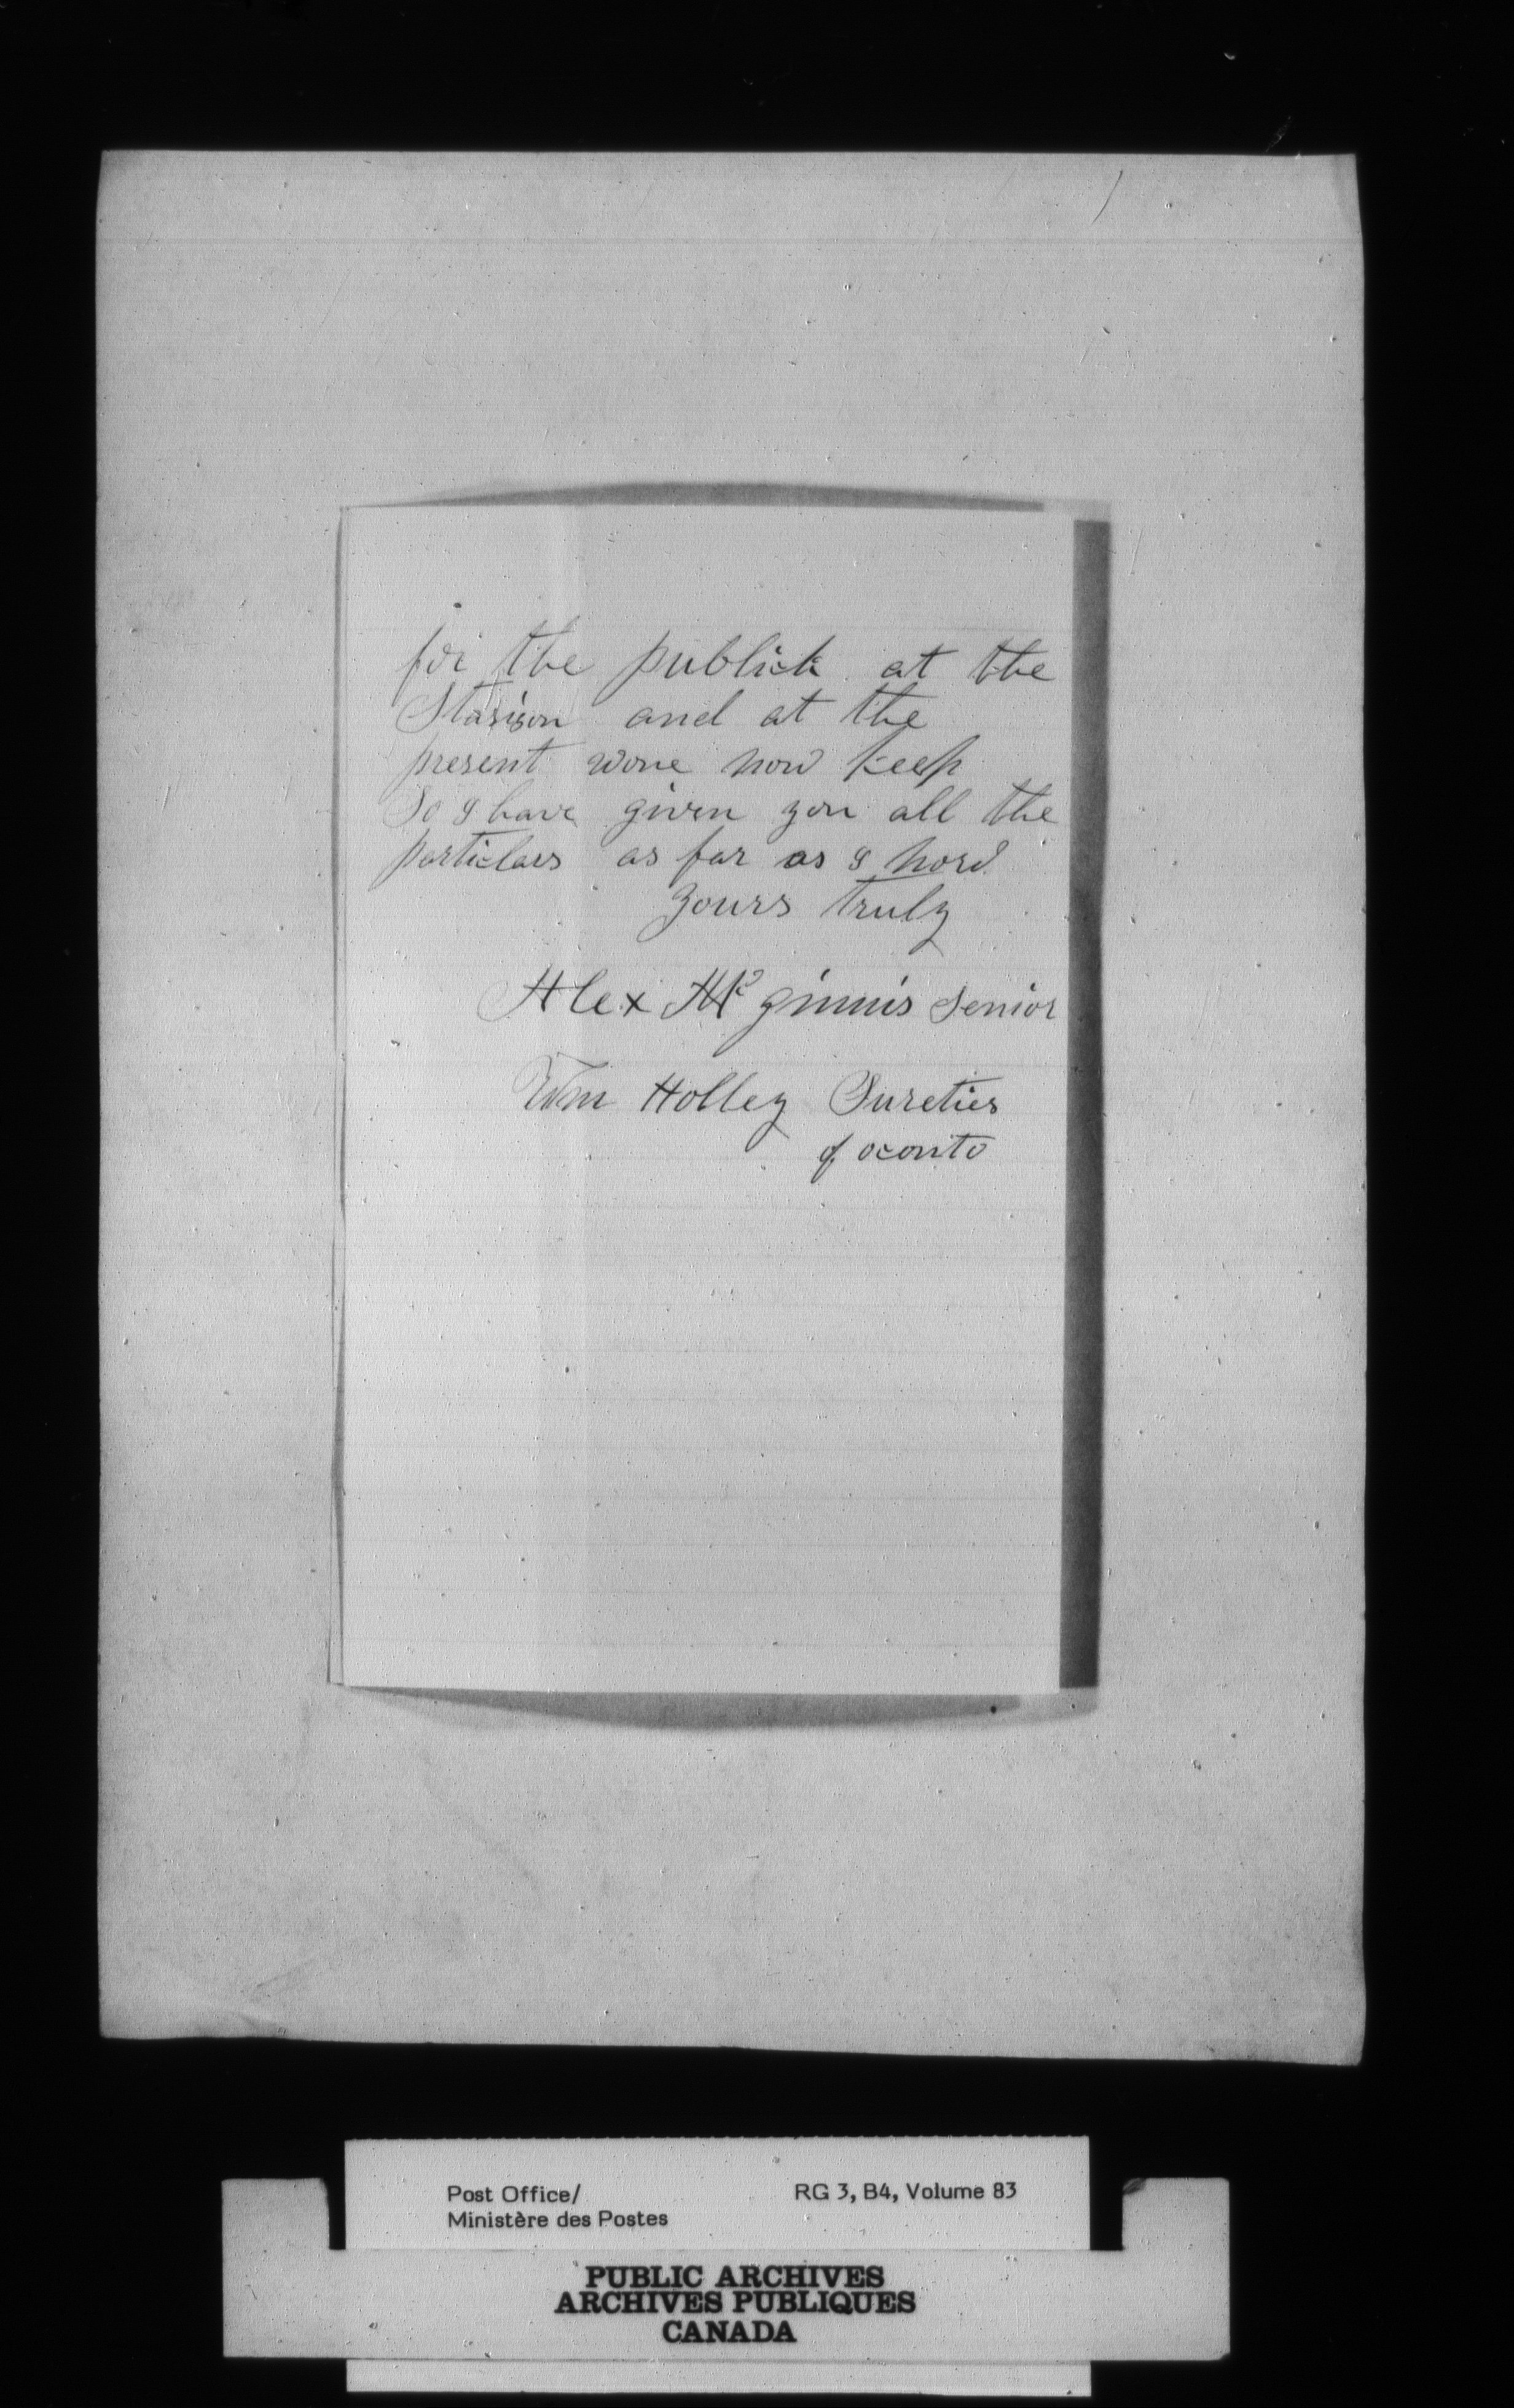 for the publick at the
Stasison and at the
present wone now keep
So I have given you all the
particlars as far as I
yours truly
Alex Mc ginnis Senior
Wm Holley Sureties
of oconto
Post Office/
Ministère des Postes
RG 3, B4, Volume 83
PUBLIC ARCHIVES
ARCHIVES PUBLIQUES
CANADA